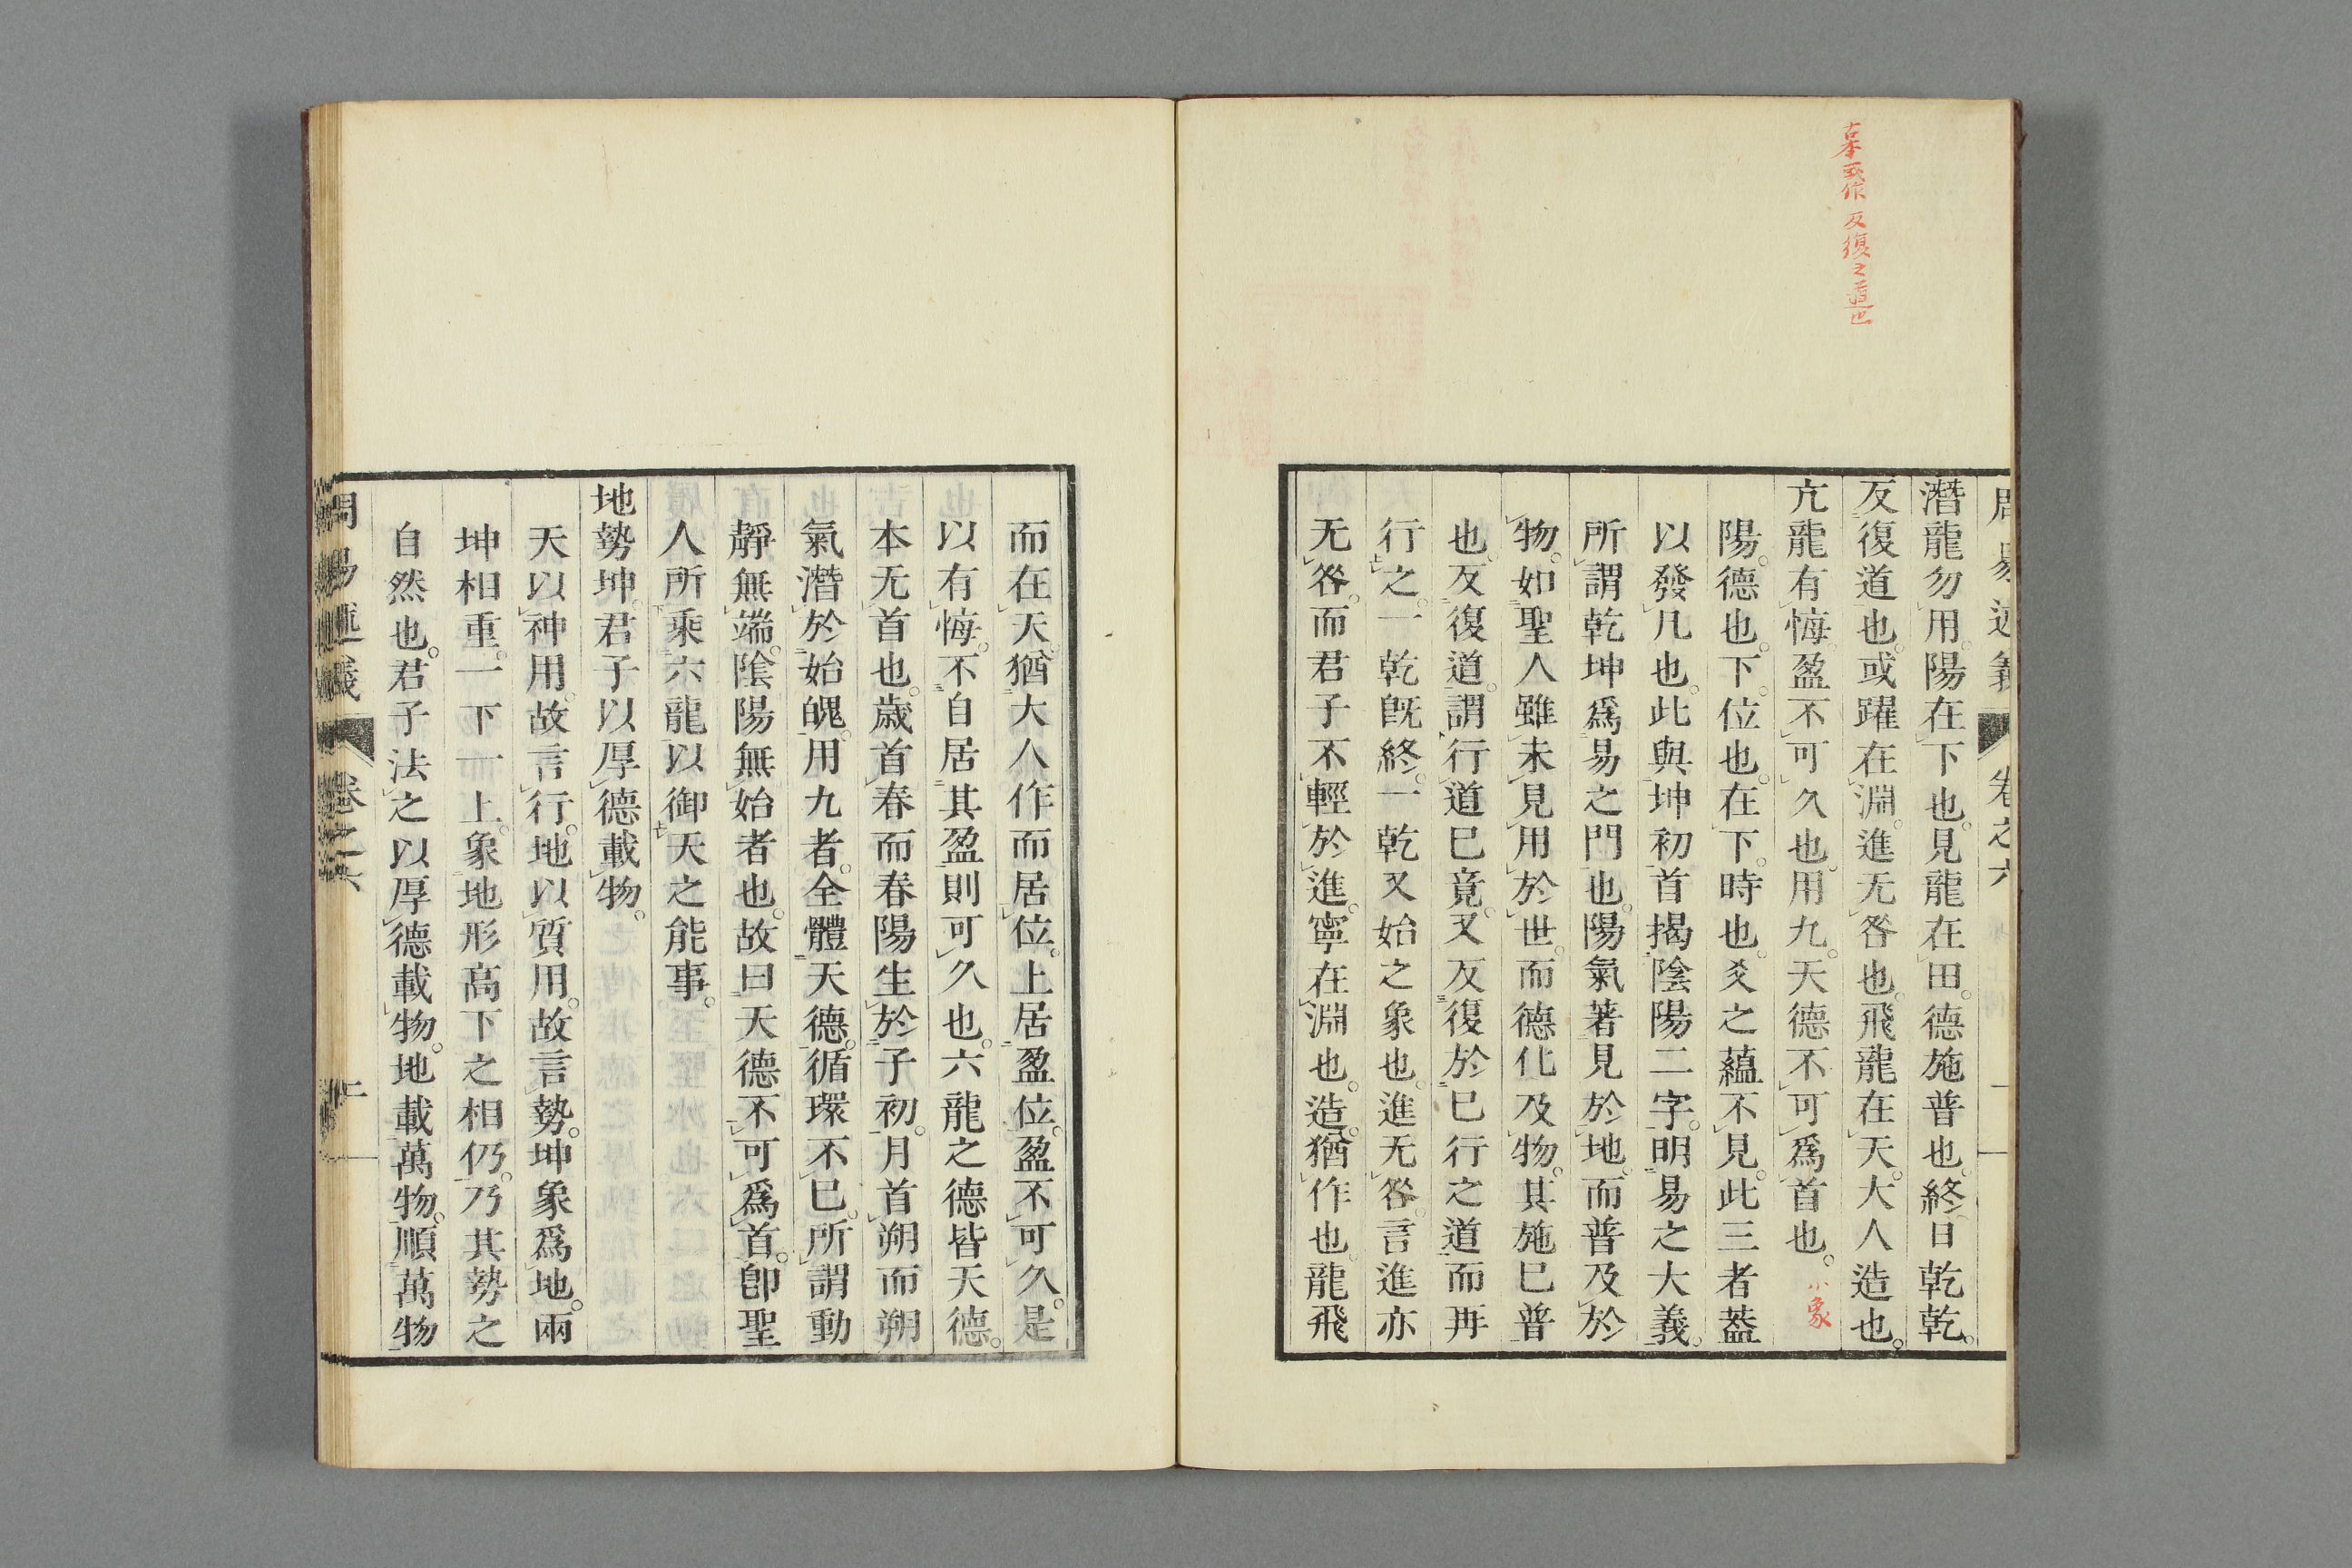 古本或作反復之道也
周易述義 卷之六 一
潛龍勿用。陽在下也。見龍在田。德施普也。終日乾乾。
反復道也。或躍在淵。進无咎也。飛龍在天。大人造也。
亢龍有悔。盈不可久也。用九。天德不可爲首也。小象
陽。德也。下。位也。在下。時也。爻之蘊不見。此三者葢
以發凡也。此與坤初首揭陰陽二字。明易之大義。
所謂乾坤爲易之門也。陽氣著見於地。而普及於
物。如聖人雖未見用於世。而德化及物。其施巳普
也。反復道。謂行道巳竟。又反復於巳行之道而再
行之。一乾旣終。一乾又始之象也。進无咎。言進亦
无咎。而君子不輕於進。寧在淵也。造。猶作也。龍飛
而在天。猶大人作而居位。上居盈位。盈不可久。是
以有悔。不自居其盈則可久也。六龍之德皆天德。
本无首也。歲首春而春陽生於子初。月首朔而朔
氣潛於始魄。用九者。全體天德。循環不巳。所謂動
靜無端。陰陽無始者也。故曰天德不可爲首。卽聖
人所乘六龍以御天之能事。
地勢坤。君子以厚德載物。
天以神用。故言行。地以質用。故言勢。坤象爲地。兩
坤相重。一下一上。象地形高下之相仍。乃其勢之
自然也。君子法之以厚德載物。地載萬物。順萬物
周易述義 卷之六